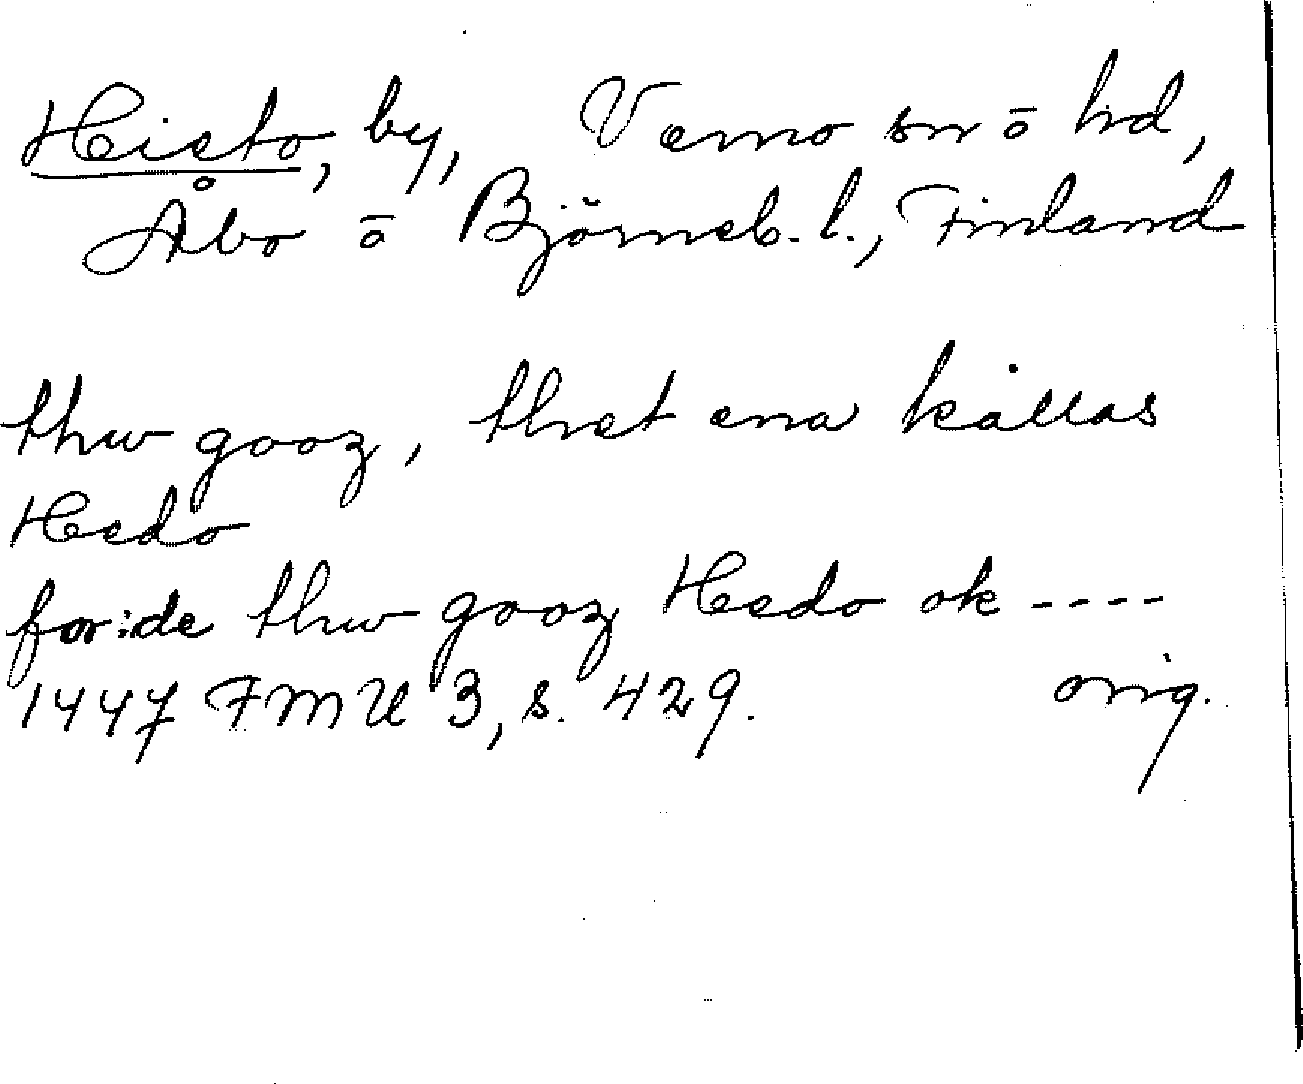 Hieto, by, Vemo sn ō hd,
Åbo ō Björneb. l., Finland
thw gooz, thet ena kallas
Hedo
for:de thw gooz Hedo ok ----
1447 FMU 3, s. 429. orig.